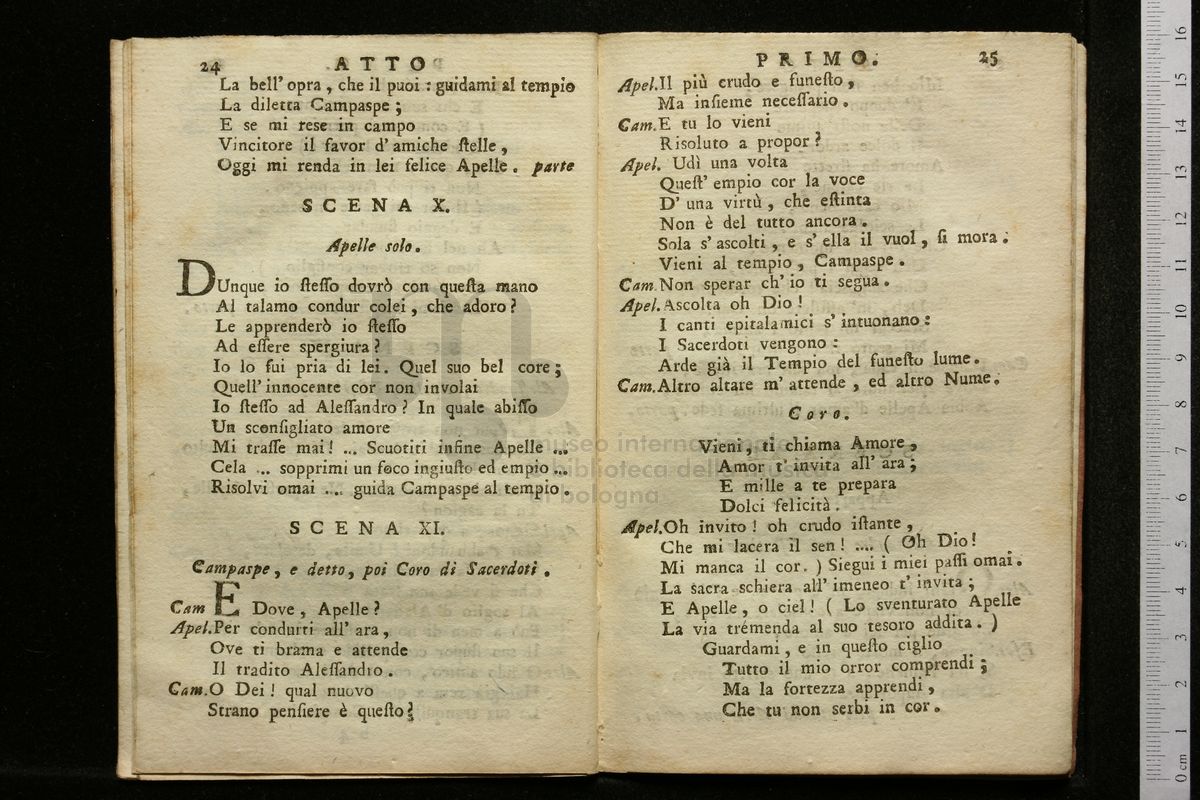 24 ATTO
La bell' opra, che il puoi: guidami al tempio
La diletta Campaspe;
E se mi rese in campo
Vincitore il favor d' amiche ſtelle,
Oggi mi renda in lei felice Apelle. parte
SCENA X.
Apelle solo.
DUnque io ſteſſo dovrò con queſta mano
Al talamo condur colei, che adoro?
Le apprenderò io ſteſſo
Ad eſſere spergiura?
Io lo fui pria di lei. Quel suo bel core;
Quell' innocente cor non involai
Io ſteſſo ad Aleſſandro? In quale abiſſo
Un sconſigliato amore
Mi traſſe mai! ... Scuotiti infine Apelle ...
Cela ... sopprimi un foco ingiuſto ed empio ...
Risolvi omai .... guida Campaspe al tempio.
SCENA XI.
Campaspe, e detto, poi Coro di Sacerdoti.
Cam E Dove, Apelle?
Apel. Per condurti all' ara,
Ove ti brama e attende
Il tradito Aleſſandro.
Cam. O Dei! qual nuovo
Strano penſiere è queſto?
PRIMO. 25
Apel. Il più crudo e funeſto,
Ma inſieme neceſſario.
Cam. E tu lo vieni
Risoluto a propor?
Apel. Udì una volta
Queſt' empio cor la voce
D' una virtù, che eſtinta
Non è del tutto ancora.
Sola s' ascolti, e s' ella il vuol, ſi mora.
Vieni al tempio, Campaspe.
Cam. Non sperar ch' io ti segua.
Apel. Ascolta oh Dio!
I canti epitalamici s' intuonano:
I Sacerdoti vengono:
Arde già il Tempio del funeſto lume.
Cam. Altro altare m' attende, ed altro Nume.
Coro.
Vieni, ti chiama Amore,
Amor t' invita all' ara;
E mille a te prepara
Dolci felicità.
Apel. Oh invito! oh crudo iſtante,
Che mi lacera il sen! .... ( Oh Dio!
Mi manca il cor. ) Siegui i miei paſſi omai.
La sacra schiera all' imeneo t' invita;
E Apelle, o ciel! ( Lo sventurato Apelle
La via tremenda al suo tesoro addita. )
Guardami, e in queſto ciglio
Tutto il mio orror comprendi;
Ma la fortezza apprendi,
Che tu non serbi in cor.
museo internazionale
biblioteca della musica
di bologna
0 cm 1 2 3 4 5 6 7 8 9 10 11 12 13 14 15 16